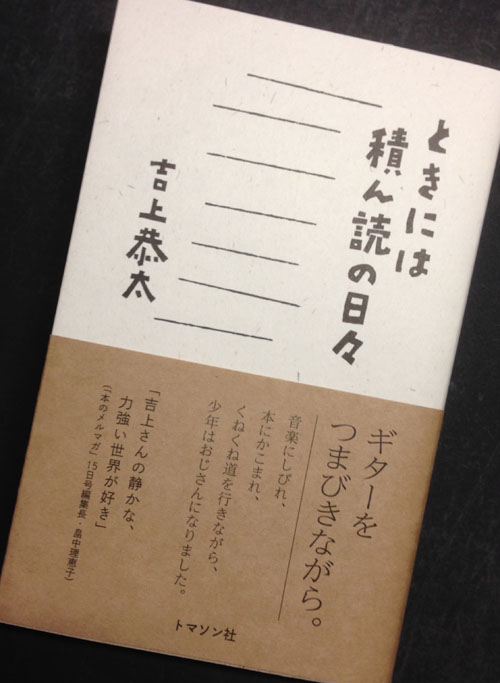 ときには
積ん読の日々
吉上恭太
ギターを
つまびきながら。
音楽にしびれ、
本にかこまれ、
くねくね道を行きながら、
少年はおじさんになりました。
「吉上さんの静かな、
力強い世界が好き」
(「本のメルマガ」15日号編集長・畠中理恵子)
トマソン社